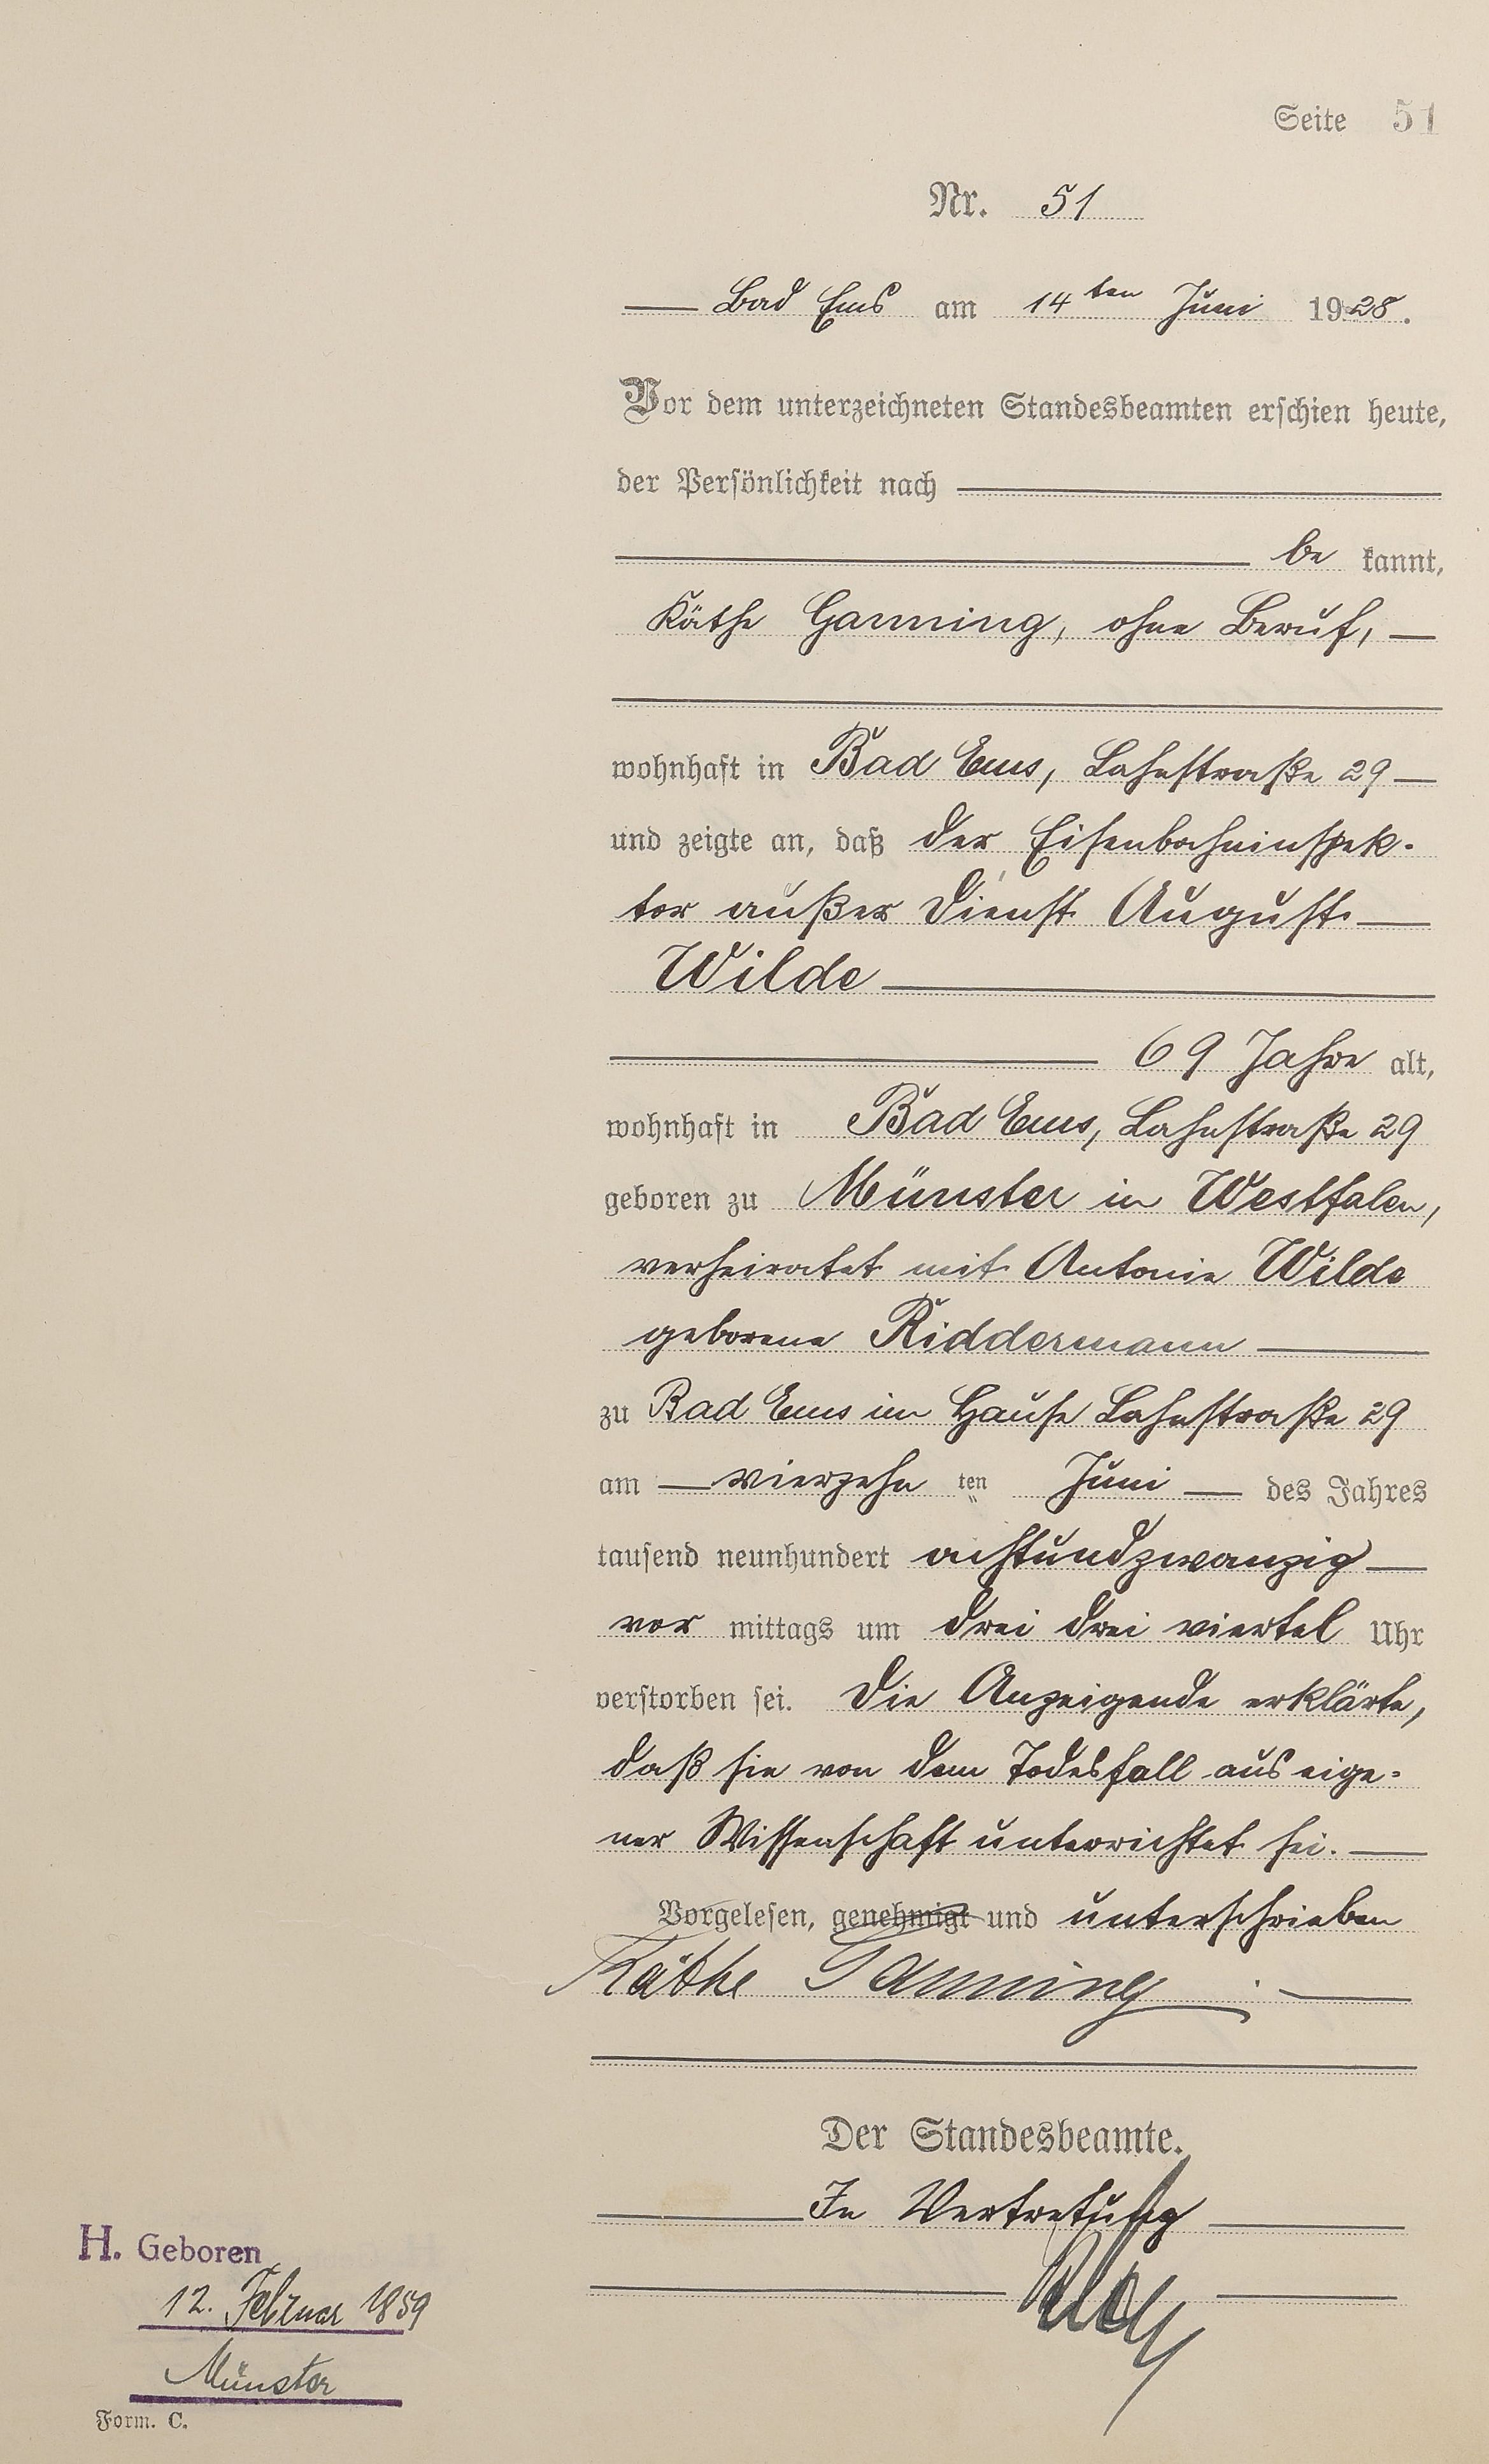 Seite 51
Nr. 51
Bad Ems am 14ten Juni 1928.
Vor dem unterzeichneten Standesbeamten erschien heute,
der Persönlichkeit nach
be kannt,
Käthe Ganning, ohne Beruf,
wohnhaft in Bad Ems, Lahnstraße 29
und zeigte an, daß der Eisenbahninspek-
tor außer Dienst August
Wilde
69 Jahre alt,
wohnhaft in Bad Ems, Lahnstraße 29
geboren zu Münster in Westfalen,
verheiratet mit Antonie Wilde
geborene Riddermann
zu Bad Ems im Hause Lahnstraße 29
am vierzehn ten Juni des Jahres
tausend neunhundert achtundzwanzig
vor mittags um drei drei viertel Uhr
verstorben sei. Die Anzeigende erklärte,
daß sie von dem Todesfall aus eige-
ner Wissenschaft unterrichtet sei.
Vorgelesen, genehmigt und unterschrieben
Käthe Ganning
Der Standesbeamte.
In Vertretung
H. Geboren
12. Februar 1859
Münster
Form. C.